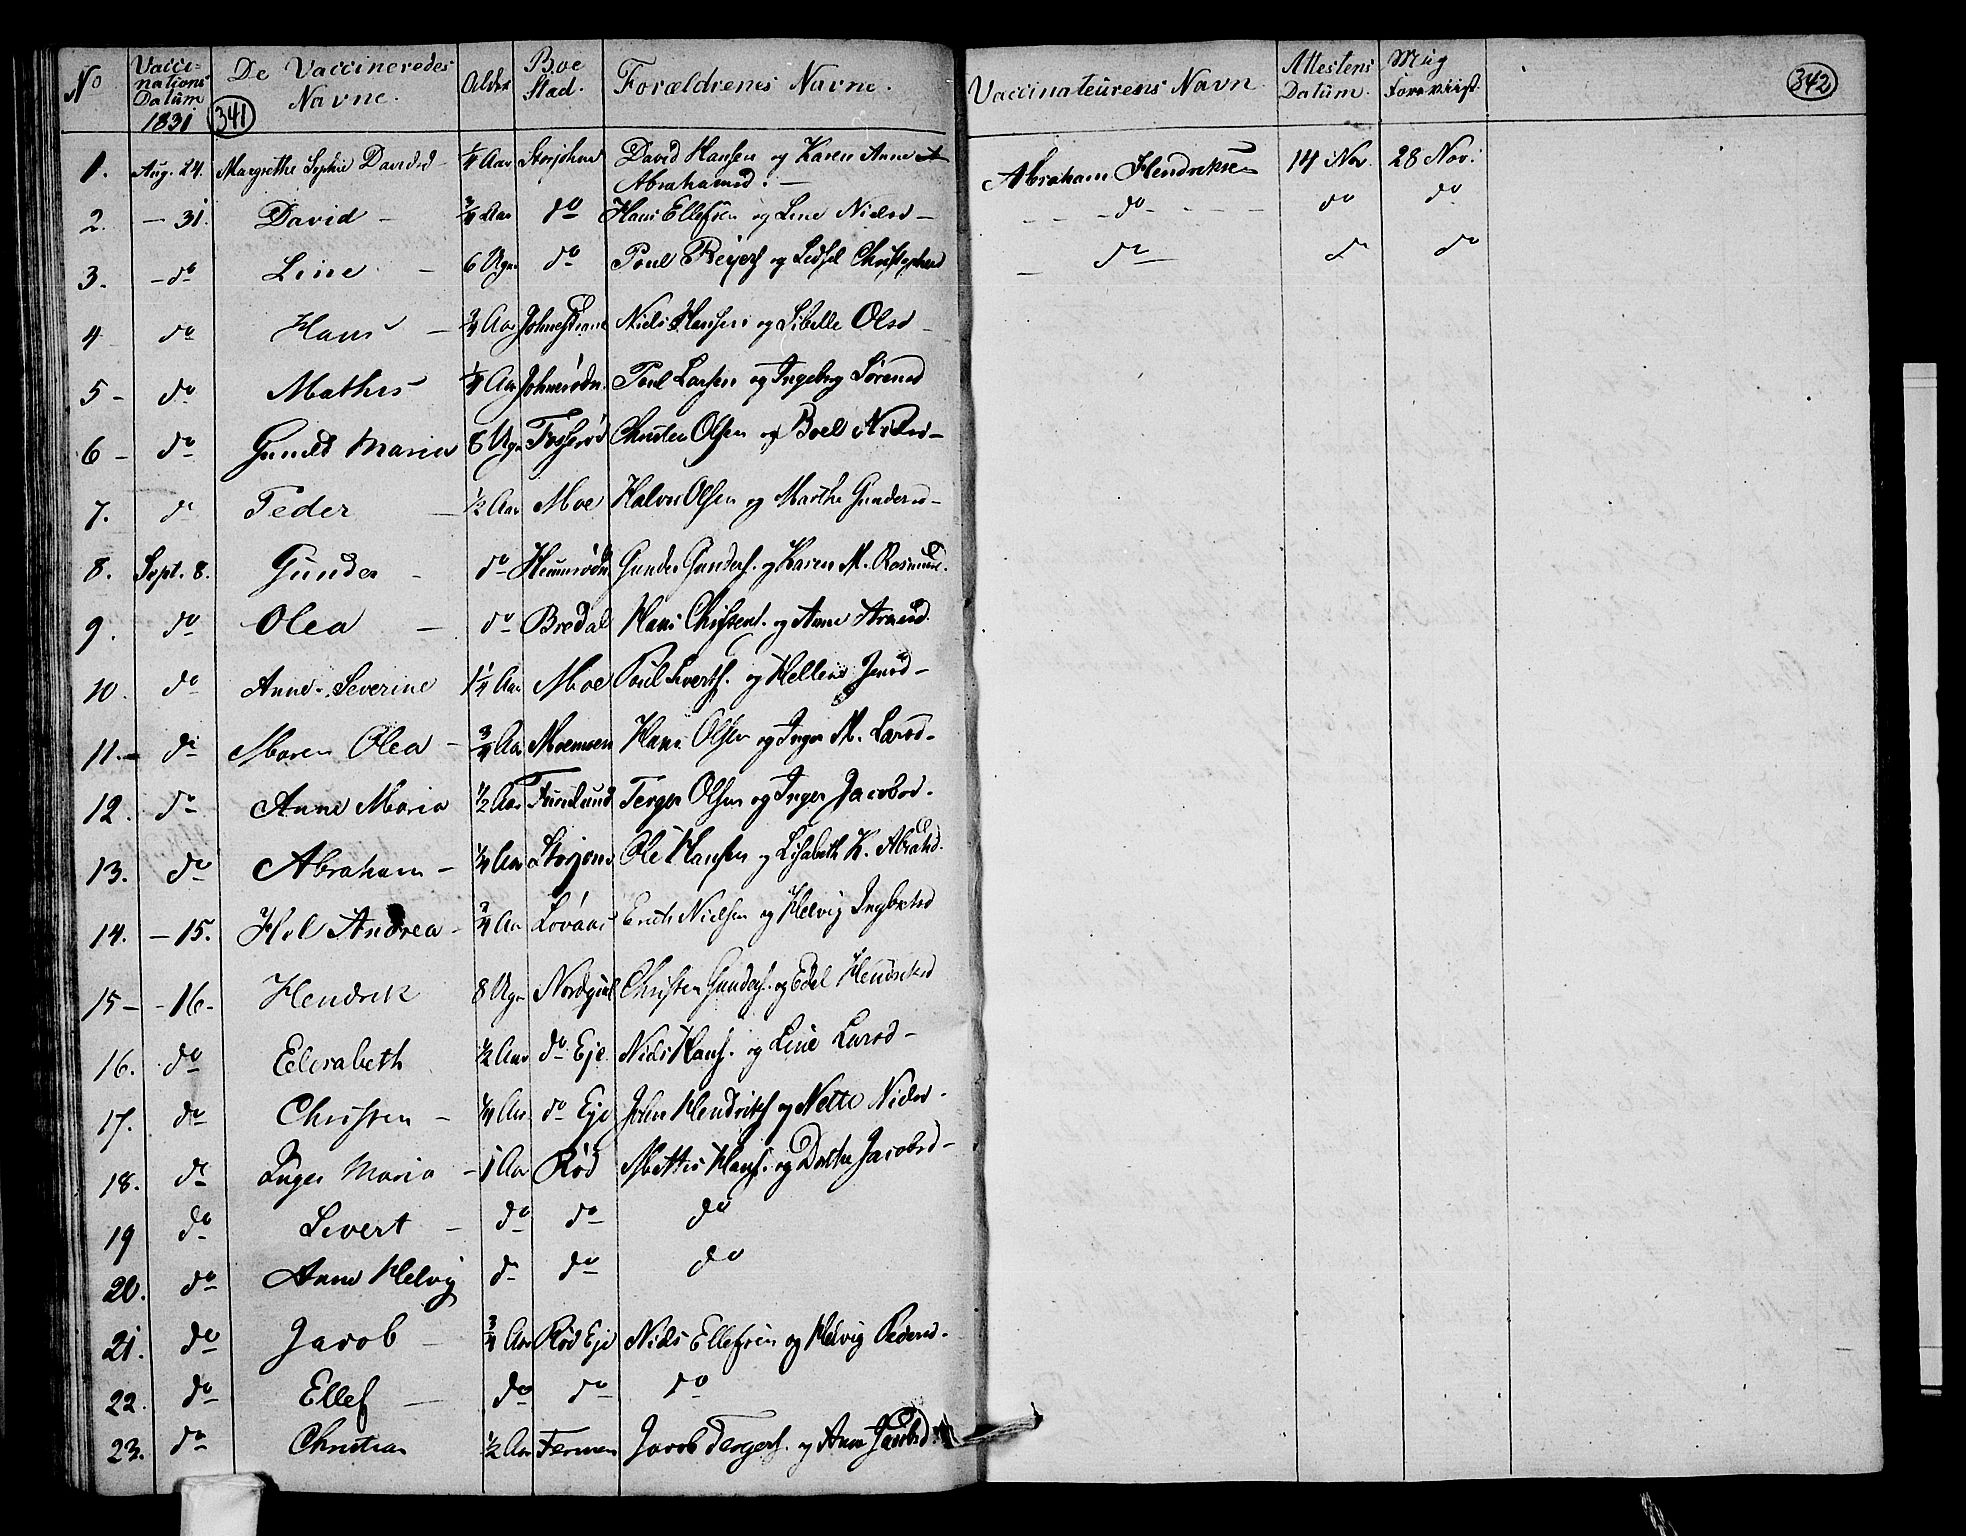 No | Vacci- nations Datum 1831 | De Vaccineredes Navne. | Alder | Boe Stad. | Forældrenes Navne. | Vaccinateurens Navn | Attestens Datum. | Mig Foreviist.
341
342
1. | Aug. 24. | Margrethe Sophie Davidsd | 1/4 Aar | | David Hansen og Karen Anne Abrahamsd. — | Abraham Hendriksen | 14 Nov. | 28 Nov.
2. | — 31. | David — | 3/4 Aar | do | Hans Ellefsen og Line Nielsd — | do | do | do
3. | — do | Line — | 6 Ugr | do | Poul Reyers og Christophersd | do | do | do
4 | do | Hans — | 3/4 Aar | | Niels Hansen og Sibelle Olsd —
5 — | do | Mathis | 1/4 Aar | | Poul Larsen og Ingebrg Sørensd
6 — | do | Maria | 8 Ugr | Fosserød | Christen Olsen og Boel Nielsd —
7. | do | Peder — | 1/2 Aar | Moe | Halvor Olsen og Marthe Gundersd —
8. | Sept. 8. | Gunder — | do | | Gunder Gunders. og Karen M. Rasmusd.
9. | do | Olea — | do | Bredal | Hans Christens. og Anne
10. | do | Anne Severine | 1 1/4 Aar | Moe | Poul Siverts. og Hellene Jensd —
11. — | do | Maren Olea — | 3/4 Aar | Moemoen | Hans Olsen og Inger M. Larsd —
12. | do | Anne Maria | 1/2 Aar | | Terger Olsen og Inger Jacobsd.
13. | do | Abraham — | 1/4 Aar | | Ole Hansen og Lisabeth K. Abrahsd.
14. | — 15. | Andrea — | 3/4 Aar | Lovaas | Nielsen og Helvig Ingbretsd
15 — | — 16. | Hendrik | 8 Ugr | | Christen Gunders. og Edel Hendriksd
16. | do | Elisabeth | 1/2 Aar | do Eje | Niels Hans. og Line Larsd —
17. | do | Christen — | 1/4 Aar | do Eje | John Hendriks. og Nette Nielsd.
18. | do | Inger Maria — | 1 Aar | Rød | Mathis Hans. og Dorthe Jacobsd —
19 | do | Sivert — | do | do | do
20. | do | Anne Helvig | do | do | do
21. | do | Jacob — | 3/4 Aar | Rød Eje | Niels Ellefsen og Helvig Pedersd.
22. | do | Ellef — | do | do | do
23. | do | Christian | 1/2 Aar | | Jacob Tergers. og Anne Jacobsd.